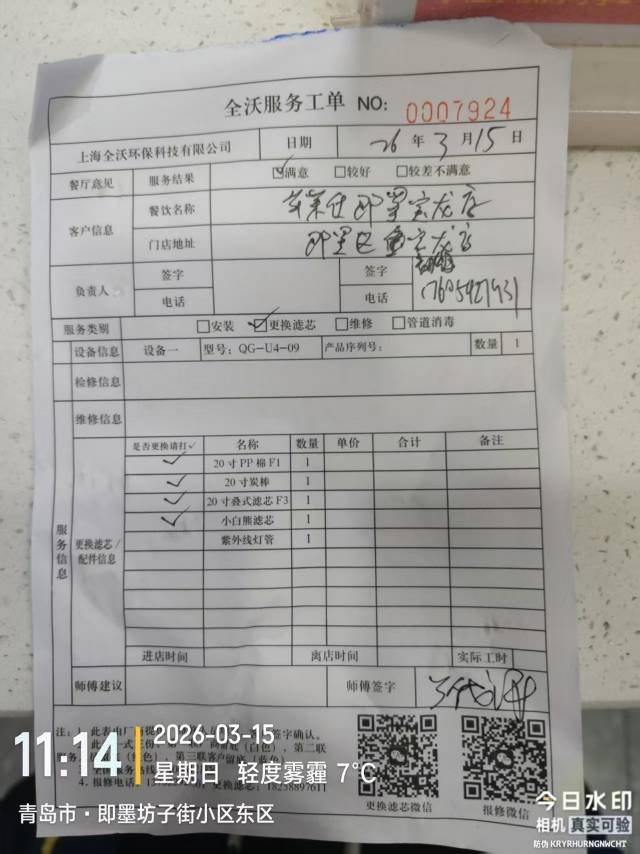 全沃服务工单 NO: 0007924
上海全沃环保科技有限公司 日期 26 年 3 月 15 日
餐厅意见 服务结果 ☑满意 □较好 □较差不满意
客户信息 餐饮名称 即墨宝龙店
门店地址 即墨区 宝龙店
负责人 签字 签字
电话 电话
服务类别 □安装 ☑更换滤芯 □维修 □管道消毒
设备信息 设备一 型号: QG-U4-09 产品序列号: 数量 1
检修信息
维修信息
服务信息
更换滤芯/配件信息
是否更换请打✓ 名称 数量 单价 合计 备注
✓ 20寸PP棉F1 1
✓ 20寸炭棒 1
✓ 20寸叠式滤芯F3 1
✓ 小白熊滤芯 1
紫外线灯管 1
进店时间 离店时间 实际工时
师傅建议 师傅签字
注: 1. 此表由厂 签字确认。
式三份, (白色), 第二联
服务 色), 第三联客户留底(蓝色)
4. 报修电话: 更换滤芯: 18258897611
更换滤芯微信 报修微信
11:14 2026-03-15
星期日 轻度雾霾 7℃
青岛市·即墨坊子街小区东区
今日水印
相机 真实可验
防伪 KRYRHURNGNWCHT